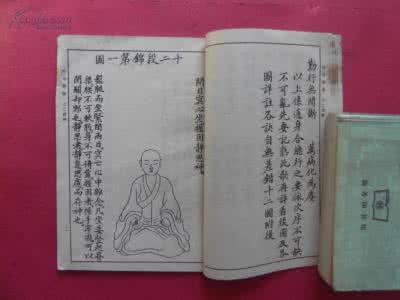 勤行無間斷　萬病化為塵
以上係通身合總行之要依次序不可缺
不可亂先要記熟此歌再詳看後圖及各
圖詳註各訣自無差錯十二圖附後
十二段錦第一圖
閉目冥心坐握固靜思神
盤腿而坐緊閉兩目冥亡心中雜念凡坐要豎起脊
梁腰不可軟弱身不可倚靠握固者握手牢固可以
閉關卻邪也靜思者靜息思慮而存神也